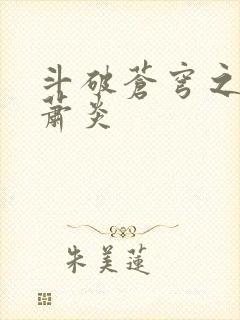 斗破苍穹之
萧炎
朱美莲